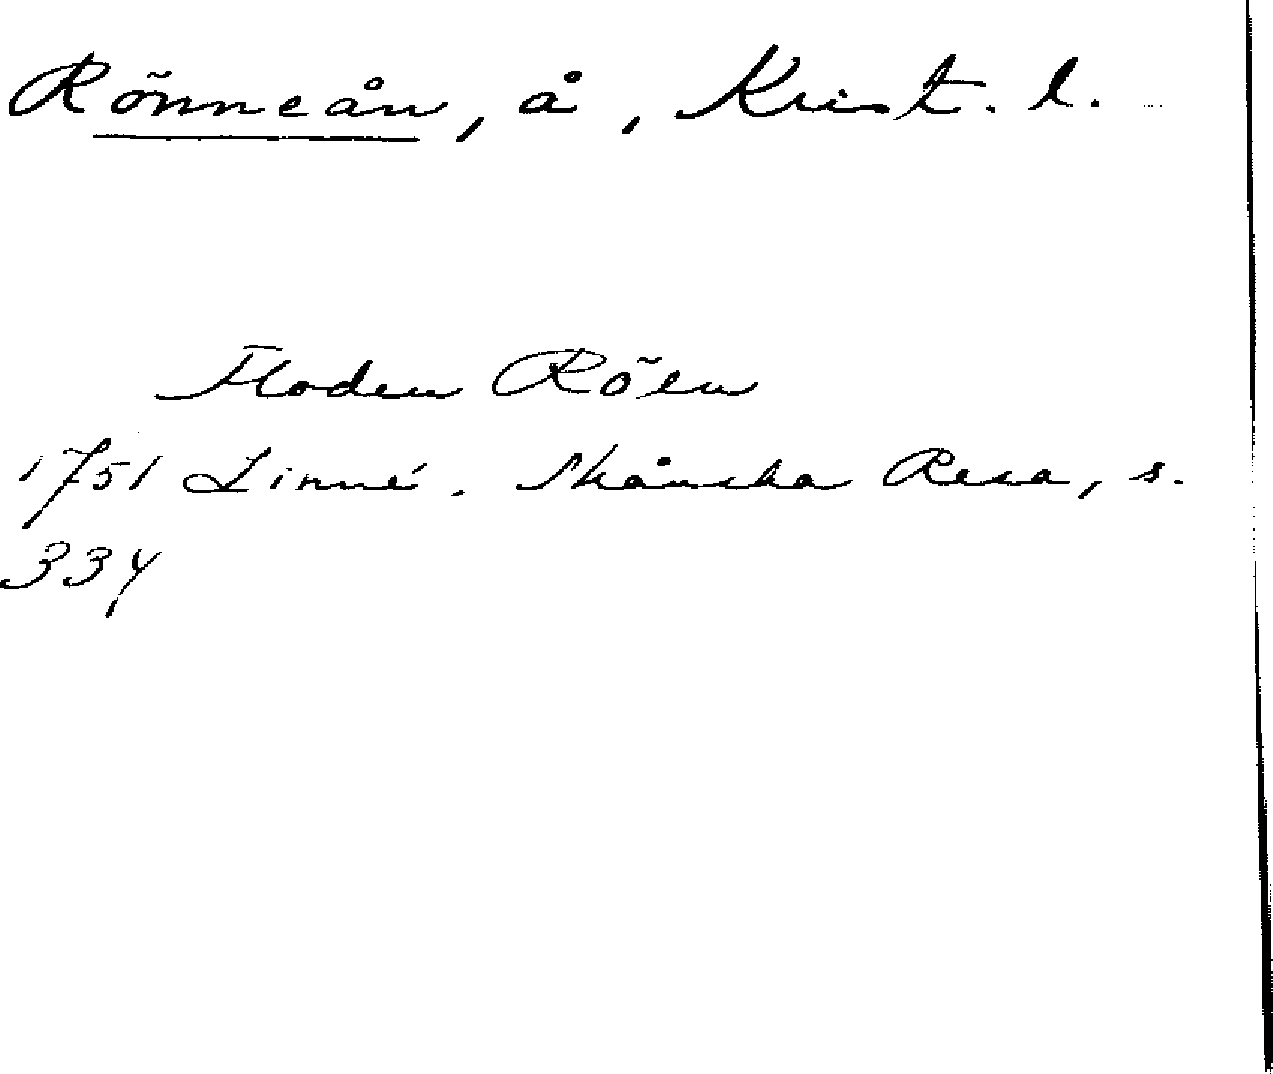 Rönneån, å, Krist. l.
Floden Röen
1751 Linné. Skånska Resa, s.
334